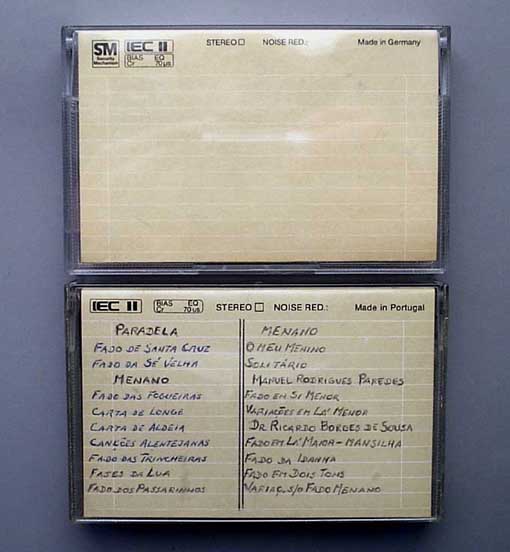 SM IEC II STEREO NOISE RED.: Made in Germany
Security Mechanism BIAS Cr EQ 70µs
IEC II BIAS Cr EQ 70µs STEREO NOISE RED.: Made in Portugal
PARADELA
FADO DE SANTA CRUZ
FADO DA SÉ VELHA
MENANO
FADO DAS FOGUEIRAS
CARTA DE LONGE
CARTA DE ALDEIA
CANÇÕES ALENTEJANAS
FADO DAS TRINCHEIRAS
FASES DA LUA
FADO DOS PASSARINHOS
MENANO
O MEU MENINO
SOLITÁRIO
MANUEL RODRIGUES PAREDES
FADO EM SI MENOR
VARIAÇÕES EM LÁ MENOR
DR RICARDO BORGES DE SOUSA
FADO EM LÁ MAIOR - MANSILHA
FADO DA IDANHA
FADO EM DOIS TONS
VARIAÇ. S/O FADO MENANO